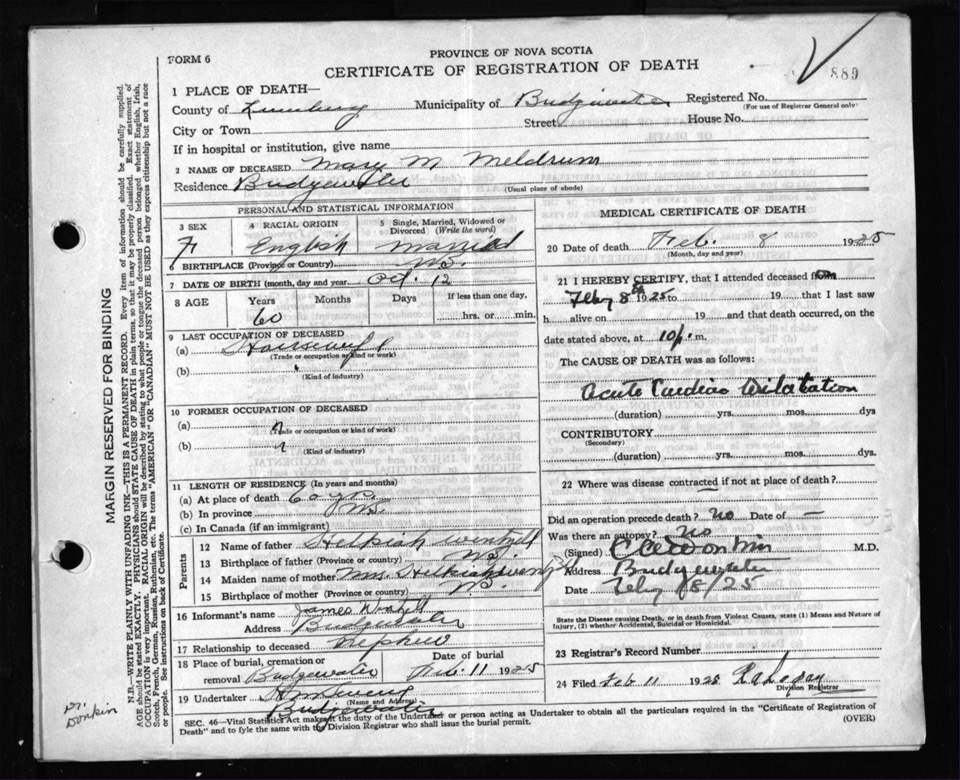 889
FORM 6
PROVINCE OF NOVA SCOTIA
CERTIFICATE OF REGISTRATION OF DEATH
1 PLACE OF DEATH—
County of Lunenburg Municipality of Bridgewater Registered No.
(For use of Registrar General only)
City or Town Street House No.
If in hospital or institution, give name
2 NAME OF DECEASED Mary M Meldrum
Residence Bridgewater
(Usual place of abode)
PERSONAL AND STATISTICAL INFORMATION
3 SEX 4 RACIAL ORIGIN 5 Single, Married, Widowed or Divorced (Write the word)
F English Married
6 BIRTHPLACE (Province or Country) N.S.
7 DATE OF BIRTH (month, day and year) Oct. 12
8 AGE Years Months Days If less than one day,
60 hrs. or min.
9 LAST OCCUPATION OF DECEASED
(a) Housewife
(Trade or occupation or kind of work)
(b)
(Kind of industry)
10 FORMER OCCUPATION OF DECEASED
(a)
(Trade or occupation or kind of work)
(b)
(Kind of industry)
11 LENGTH OF RESIDENCE (In years and months)
(a) At place of death 60 yrs
(b) In province N.S.
(c) In Canada (if an immigrant)
Parents
12 Name of father Helkiah Wentzell
13 Birthplace of father (Province or country) N.S.
14 Maiden name of mother Mrs. Helkiah Wentzell
15 Birthplace of mother (Province or country) N.S.
16 Informant's name James Wentzell
Address Bridgewater
17 Relationship to deceased Nephew
18 Place of burial, cremation or removal Bridgewater Date of burial Feb. 11 1925
19 Undertaker
(Name and Address)
Bridgewater
MEDICAL CERTIFICATE OF DEATH
20 Date of death Feb. 8 1925
(Month, day and year)
21 I HEREBY CERTIFY, that I attended deceased from
Feby 8th 1925 to 19 that I last saw
h alive on 19 and that death occurred, on the
date stated above, at 10 p. m.
The CAUSE OF DEATH was as follows:
Acute Cardiac Dilatation
(duration) yrs. mos. dys
CONTRIBUTORY
(Secondary)
(duration) yrs. mos. dys.
22 Where was disease contracted if not at place of death?
Did an operation precede death? No Date of —
Was there an autopsy? No
(Signed) Donkin M.D.
Address Bridgewater
Date Feby 8/25
State the Disease causing Death, or in death from Violent Causes, state (1) Means and Nature of Injury, (2) whether Accidental, Suicidal or Homicidal.
23 Registrar's Record Number
24 Filed Feb 11 1925
Division Registrar
SEC. 46—Vital Statistics Act makes it the duty of the Undertaker or person acting as Undertaker to obtain all the particulars required in the "Certificate of Registration of
Death" and to fyle the same with the Division Registrar who shall issue the burial permit. (OVER)
MARGIN RESERVED FOR BINDING
N.B.—WRITE PLAINLY WITH UNFADING INK—THIS IS A PERMANENT RECORD. Every item of information should be carefully supplied.
AGE should be stated EXACTLY. PHYSICIANS should STATE CAUSE OF DEATH in plain terms, so that it may be properly classified. Exact statement of
OCCUPATION is very important. RACIAL ORIGIN will be described by stating to what people or tongue the deceased person belonged whether English, Irish,
Scotch, French, German, Russian, Ruthenian, etc. The terms "AMERICAN" OR "CANADIAN" MUST NOT BE USED as they express citizenship but not a race
or people. See instructions on back of Certificate.
Dr.
Donkin